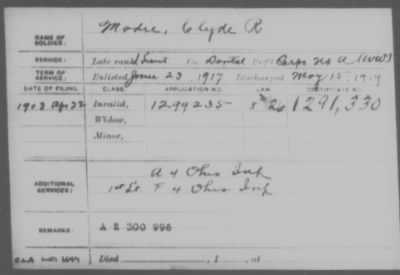 NAME OF SOLDIER: Modie, Clyde R
SERVICE: Late rank 1 Lieut Co. Dental Corps US A (WW)
TERM OF SERVICE: Enlisted June 23, 1917 Discharged May 15, 1919
DATE OF FILING. CLASS. APPLICATION NO. LAW. CERTIFICATE NO.
Invalid, 1299235 1291,330
Widow,
Minor,
ADDITIONAL SERVICES: A 4 Ohio Inf
1st Lt. F 4 Ohio Inf
REMARKS: A 2 300 996
Died , 1 , at